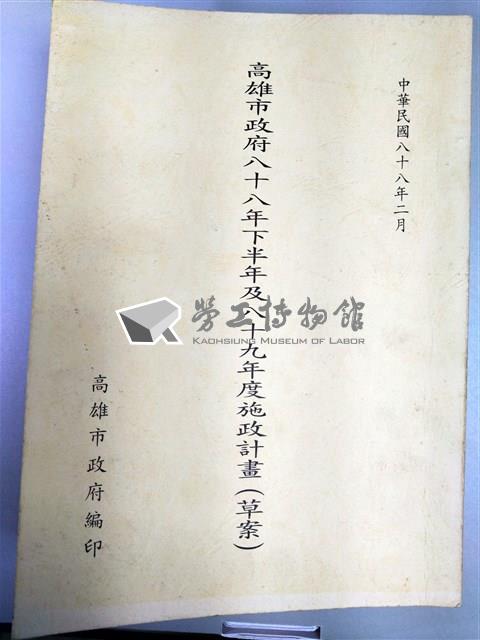 中華民國八十八年二月
高雄市政府八十八年下半年及八十九年度施政計畫(草案)
高雄市政府編印
勞工博物館
KAOHSIUNG MUSEUM OF LABOR